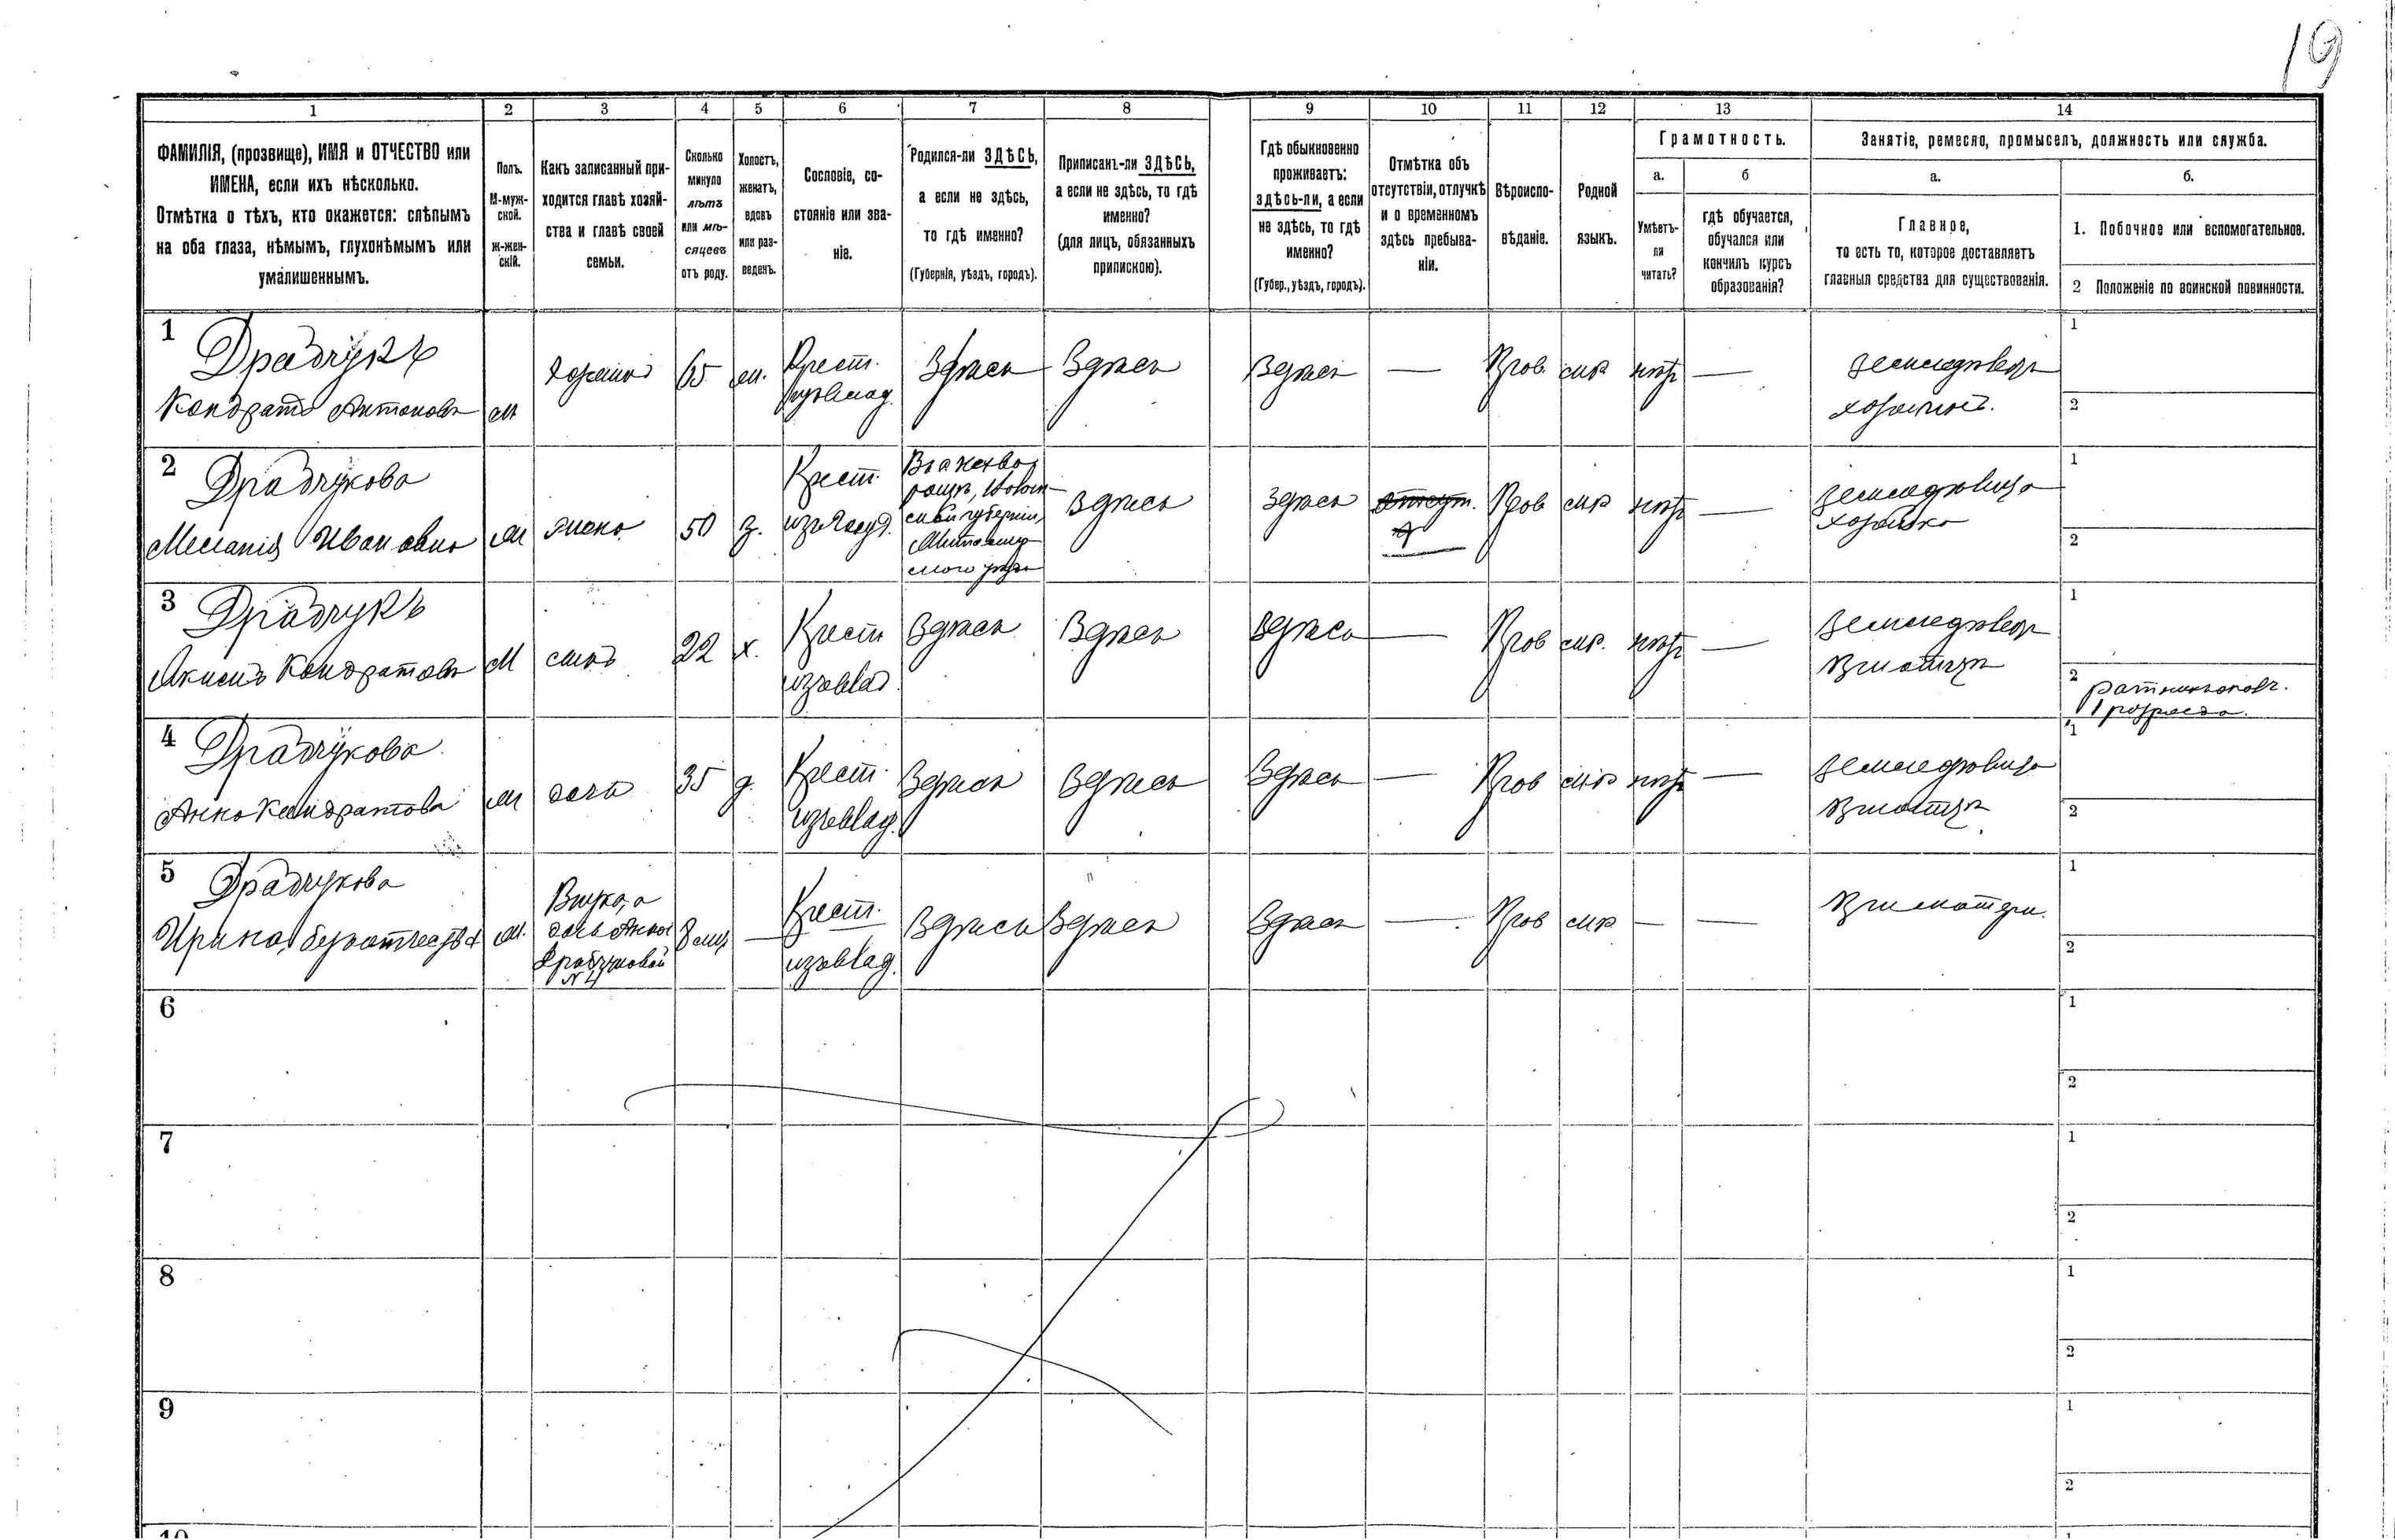 19
1
2
3
4
5
6
7
8
9
10
11
12
13
14
ФАМИЛІЯ, (прозвище), ИМЯ и ОТЧЕСТВО или
ИМЕНА, если ихъ нѣсколько.
Отмѣтка о тѣхъ, кто окажется: слѣпымъ
на оба глаза, нѣмымъ, глухонѣмымъ или
умалишеннымъ.
Полъ.
М-муж-
ской.
Ж-жен-
скій.
Какъ записанный при-
ходится главѣ хозяй-
ства и главѣ своей
семьи.
Сколько
минуло
лѣтъ
или мѣ-
сяцевъ
отъ роду.
Холостъ,
женатъ,
вдовъ
или раз-
веденъ.
Сословіе, со-
стояніе или зва-
ніе.
Родился-ли ЗДѢСЬ,
а если не здѣсь,
то гдѣ именно?
(Губернія, уѣздъ, городъ).
Приписанъ-ли ЗДѢСЬ,
а если не здѣсь, то гдѣ
именно?
(для лицъ, обязанныхъ
припискою).
Гдѣ обыкновенно
проживаетъ:
здѣсь-ли, а если
не здѣсь, то гдѣ
именно?
(Губер., уѣздъ, городъ).
Отмѣтка объ
отсутствіи, отлучкѣ
и о временномъ
здѣсь пребыва-
ніи.
Вѣроиспо-
вѣданіе.
Родной
языкъ.
Грамотность.
а.
Умѣетъ-
ли
читать?
б
гдѣ обучается,
обучался или
кончилъ курсъ
образованія?
Занятіе, ремесло, промыселъ, должность или служба.
а.
Главное,
то есть то, которое доставляетъ
главныя средства для существованія.
б.
1. Побочное или вспомогательное.
2 Положеніе по воинской повинности.
1
Драдчукъ
Кондратъ Антоновъ
М
хозяинъ
65
Крест.
Здѣсь
Здѣсь
Здѣсь
—
Прав
нѣтъ
—
земледѣлецъ
хозяинъ.
1
2
2
Драдчукова
Меланія Ивановна
жена
50
з.
Крест.
Здѣсь
Здѣсь
Прав
нѣтъ
—
земледѣлица
хозяйка
1
2
3
Драдчукъ
Якимъ Кондратовъ
М
сынъ
22
х.
Крест
изъ влад.
Здѣсь
Здѣсь
Здѣсь
—
Прав
нѣтъ
—
земледѣлецъ
при отцѣ
1
2
ратникъ ополч.
1 разряда.
4
Драдчукова
Анна Кондратова
дочь
35
д.
Крест.
изъ влад.
Здѣсь
Здѣсь
Здѣсь
—
Прав
нѣтъ
—
земледѣлица
при отцѣ
1
2
5
Драдчукова
Ирина, безъ отчества
Внука, а
дочь Анны
Драдчуковой
№ 4
8 мѣс
—
Крест.
изъ влад.
Здѣсь
Здѣсь
Здѣсь
—
Прав
—
—
при матери.
1
2
6
1
2
7
1
2
8
1
2
9
1
2
10
1